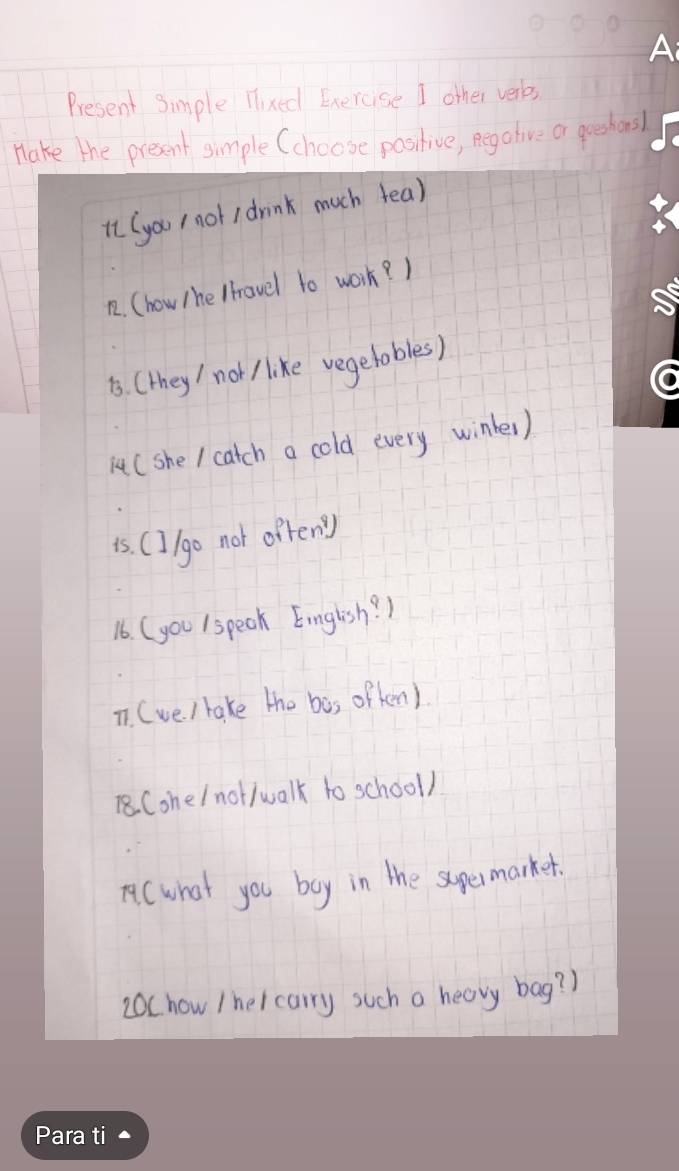 Present Simple Mixed Exercise I other verbs.
Make the present simple (choose positive, negative or questions)
11. (you / not / drink much tea)
12. (how / he / travel to work?)
13. (they / not / like vegetables)
14. (she / catch a cold every winter)
15. (I / go not often?)
16. (you / speak Eınglish?)
17. (we / take the bus often).
18. (she / not / walk to school)
19. (what you buy in the supermarket.
20. (how / he / carry such a heavy bag?)
Aa
Para ti